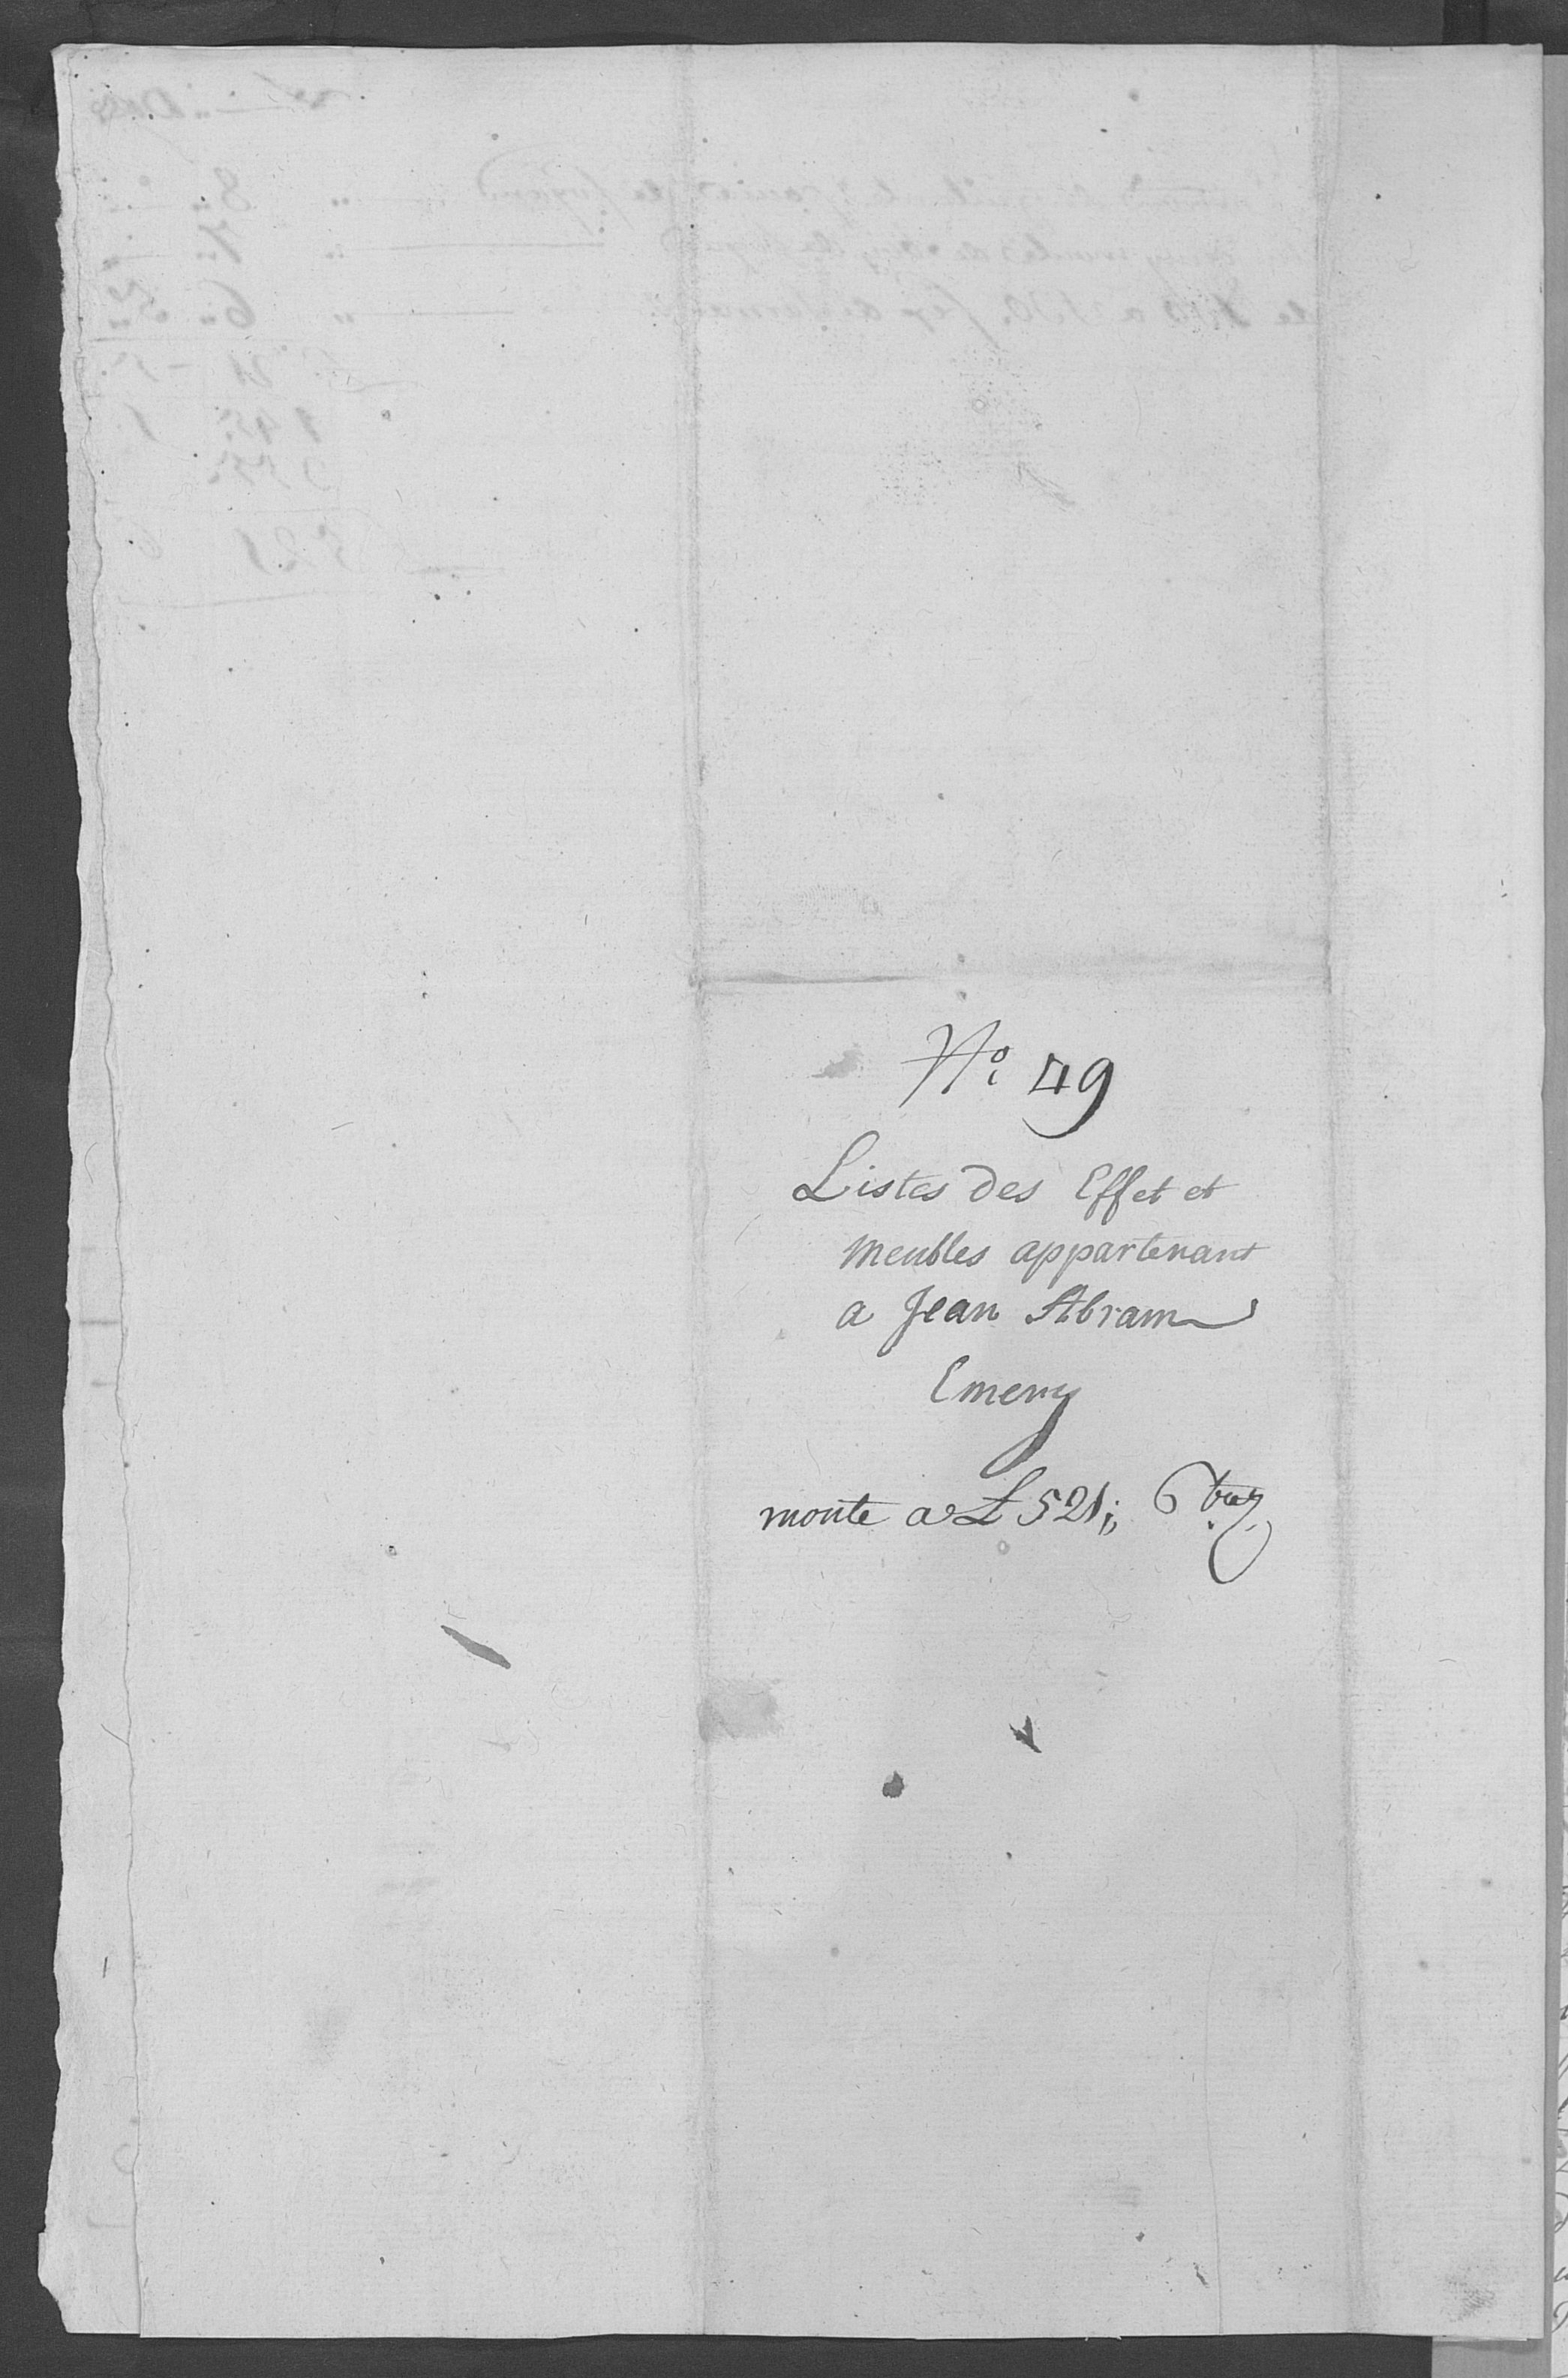 N.o 49
Listes des Effet et
meubles appartenant
a Jean Abram
Emery
monte a £ 521,, 6 bz.